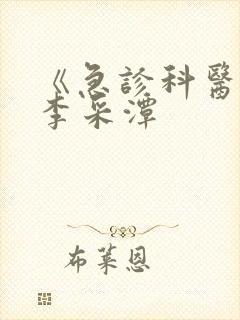 《急診科醫
李采潭
布萊恩